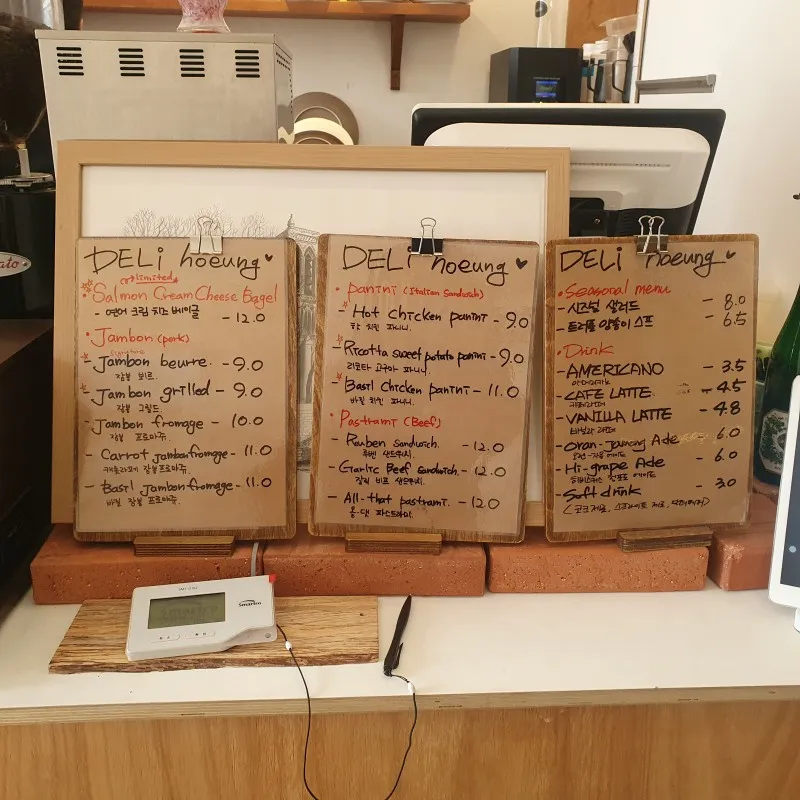 DELi hoeung
limited
Salmon Cream Cheese Bagel
- 연어 크림 치즈 베이글 - 12.0
• Jambon (pork)
Signature
Jambon beurre. - 9.0
잠봉 뵈르.
Jambon grilled - 9.0
잠봉 그릴드.
- Jambon fromage - 10.0
잠봉 프로마쥬.
- Carrot jambon fromage - 11.0
잠봉 프로마쥬.
- Basil jambon fromage - 11.0
바질 잠봉 프로마쥬.
DELi hoeung
• Panini (Italian Sandwich)
- Hot chicken panini - 9.0
핫 치킨 파니니.
- Ricotta sweet potato panini - 9.0
리코타 고구마 파니니.
- Basil chicken panini - 11.0
바질 치킨 파니니.
• Pastrami (Beef)
- Reuben sandwich. - 12.0
루벤 샌드위치.
- Garlic Beef sandwich. - 12.0
갈릭 비프 샌드위치.
- All-that pastrami. - 12.0
올-댓 파스트라미.
DELi hoeung
• Seasonal menu
- 시즈널 샐러드 - 8.0
- 트러플 양송이 스프 - 6.5
• Drink
- AMERICANO - 3.5
아메리카노
- CAFE LATTE - 4.5
카페라떼
- VANILLA LATTE - 4.8
바닐라 라떼
- Ade - 6.0
- Hi-grape Ade - 6.0
에이드
- Soft drink - 3.0
(코크 제로, 스프라이트 제로, 닥터페퍼)
Smartro